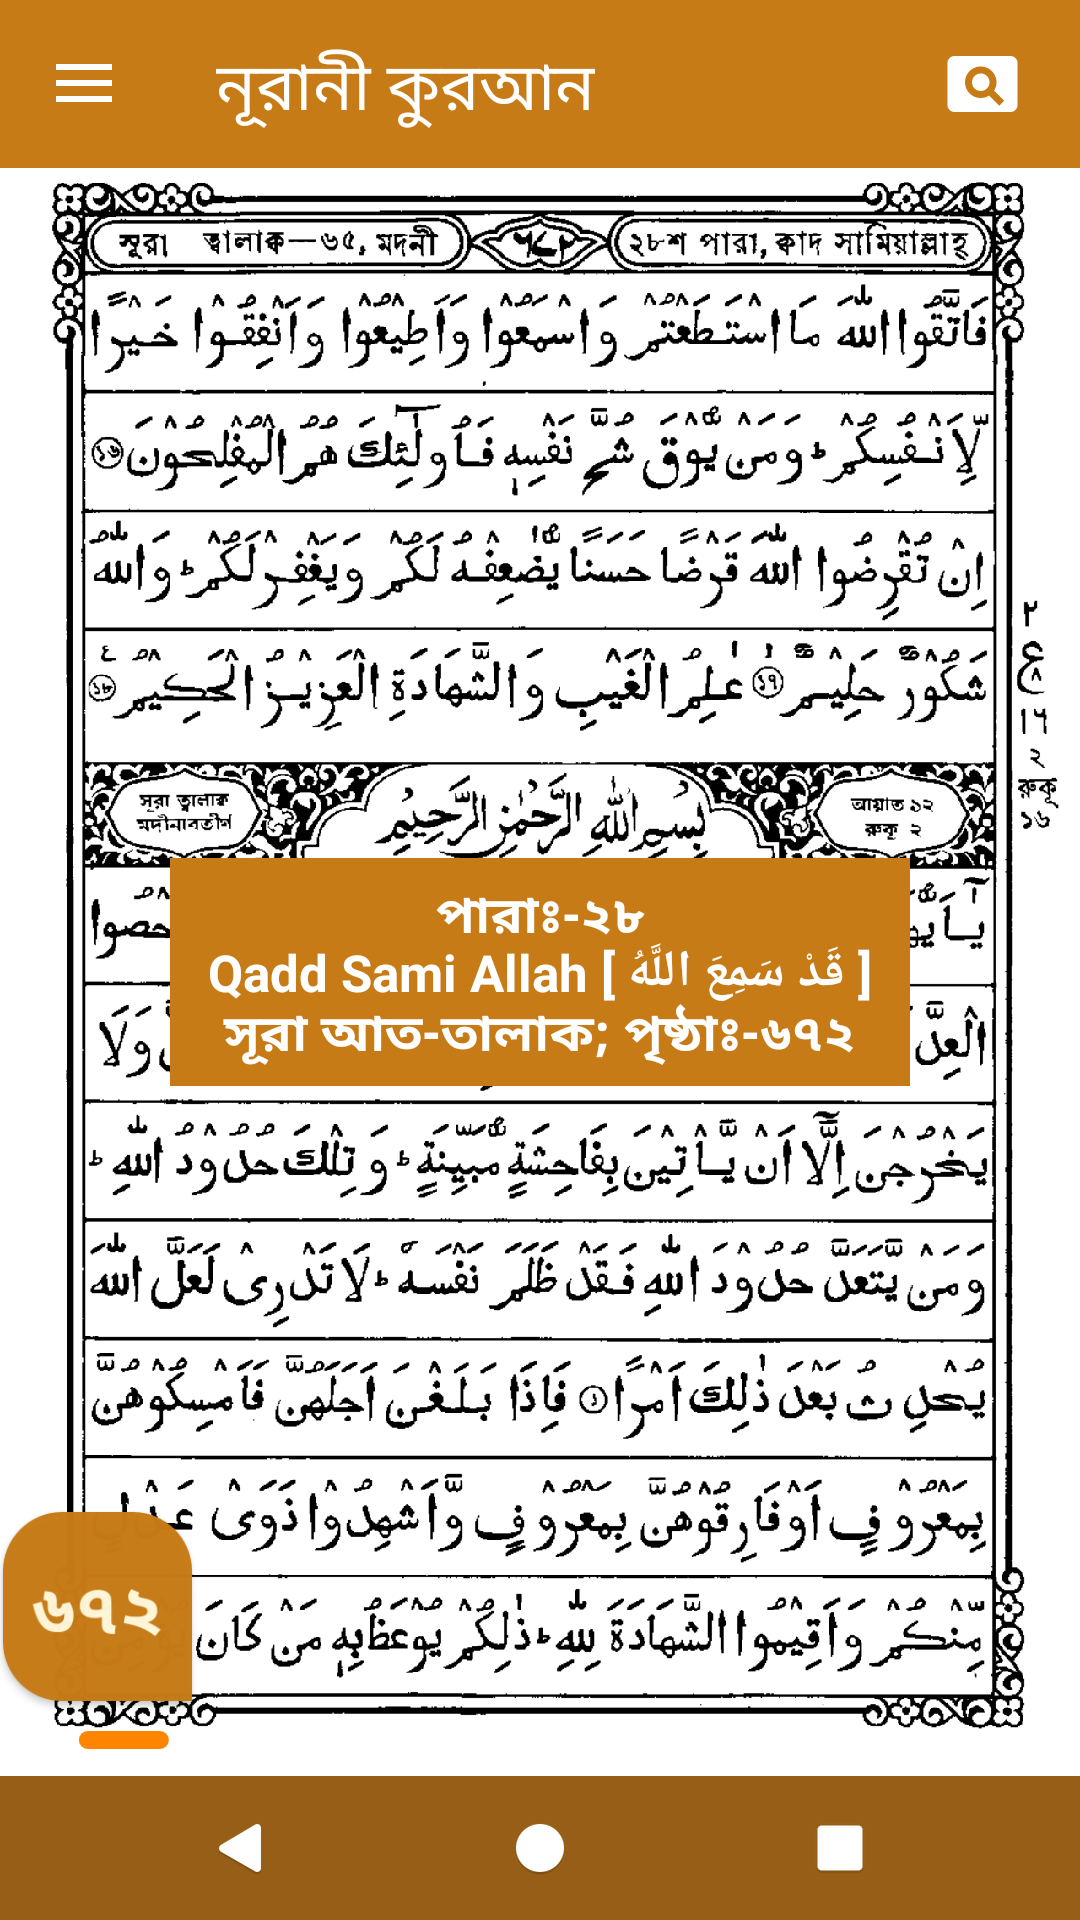 নূরানী কুরআন
সূরা ত্বালাক্ব—৬৫, মদনী ৬৭২ ২৮শ পারা, ক্বাদ সামিয়াল্লাহ্
فَاتَّقُوا اللّٰهَ مَا اسْتَطَعْتُمْ وَاسْمَعُوْا وَاَطِيْعُوْا وَاَنْفِقُوْا خَيْرًا
لِّاَنْفُسِكُمْ ؕ وَمَنْ يُّوْقَ شُحَّ نَفْسِهٖ فَاُولٰٓئِكَ هُمُ الْمُفْلِحُوْنَ ১৬
اِنْ تُقْرِضُوا اللّٰهَ قَرْضًا حَسَنًا يُّضٰعِفْهُ لَكُمْ وَيَغْفِرْ لَكُمْ ؕ وَاللّٰهُ
شَكُوْرٌ حَلِيْمٌ ১৭ عٰلِمُ الْغَيْبِ وَالشَّهَادَةِ الْعَزِيْزُ الْحَكِيْمُ ১৮
২
ع
٨
১৬
২
রুকূ
১৬
সূরা ত্বালাক্ব
মদীনাবতীর্ণ
بِسْمِ اللّٰهِ الرَّحْمٰنِ الرَّحِيْمِ
আয়াত ১২
রুকূ ২
حْصُوا
পারাঃ-২৮
Qadd Sami Allah [ قَدْ سَمِعَ اللَّهُ ]
সূরা আত-তালাক; পৃষ্ঠাঃ-৬৭২
الْعِدَّ وَلَا
يَخْرُجْنَ اِلَّاۤ اَنْ يَّاْتِيْنَ بِفَاحِشَةٍ مُّبَيِّنَةٍ ؕ وَتِلْكَ حُدُوْدُ اللّٰهِ ؕ
وَمَنْ يَّتَعَدَّ حُدُوْدَ اللّٰهِ فَقَدْ ظَلَمَ نَفْسَهٗ ؕ لَا تَدْرِىْ لَعَلَّ اللّٰهَ
يُحْدِثُ بَعْدَ ذٰلِكَ اَمْرًا ১ فَاِذَا بَلَغْنَ اَجَلَهُنَّ فَاَمْسِكُوْهُنَّ
بِمَعْرُوْفٍ اَوْ فَارِقُوْهُنَّ بِمَعْرُوْفٍ وَّاَشْهِدُوْا ذَوَىْ عَدْلٍ
مِّنْكُمْ وَاَقِيْمُوا الشَّهَادَةَ لِلّٰهِ ؕ ذٰلِكُمْ يُوْعَظُ بِهٖ مَنْ كَانَ
৬৭২